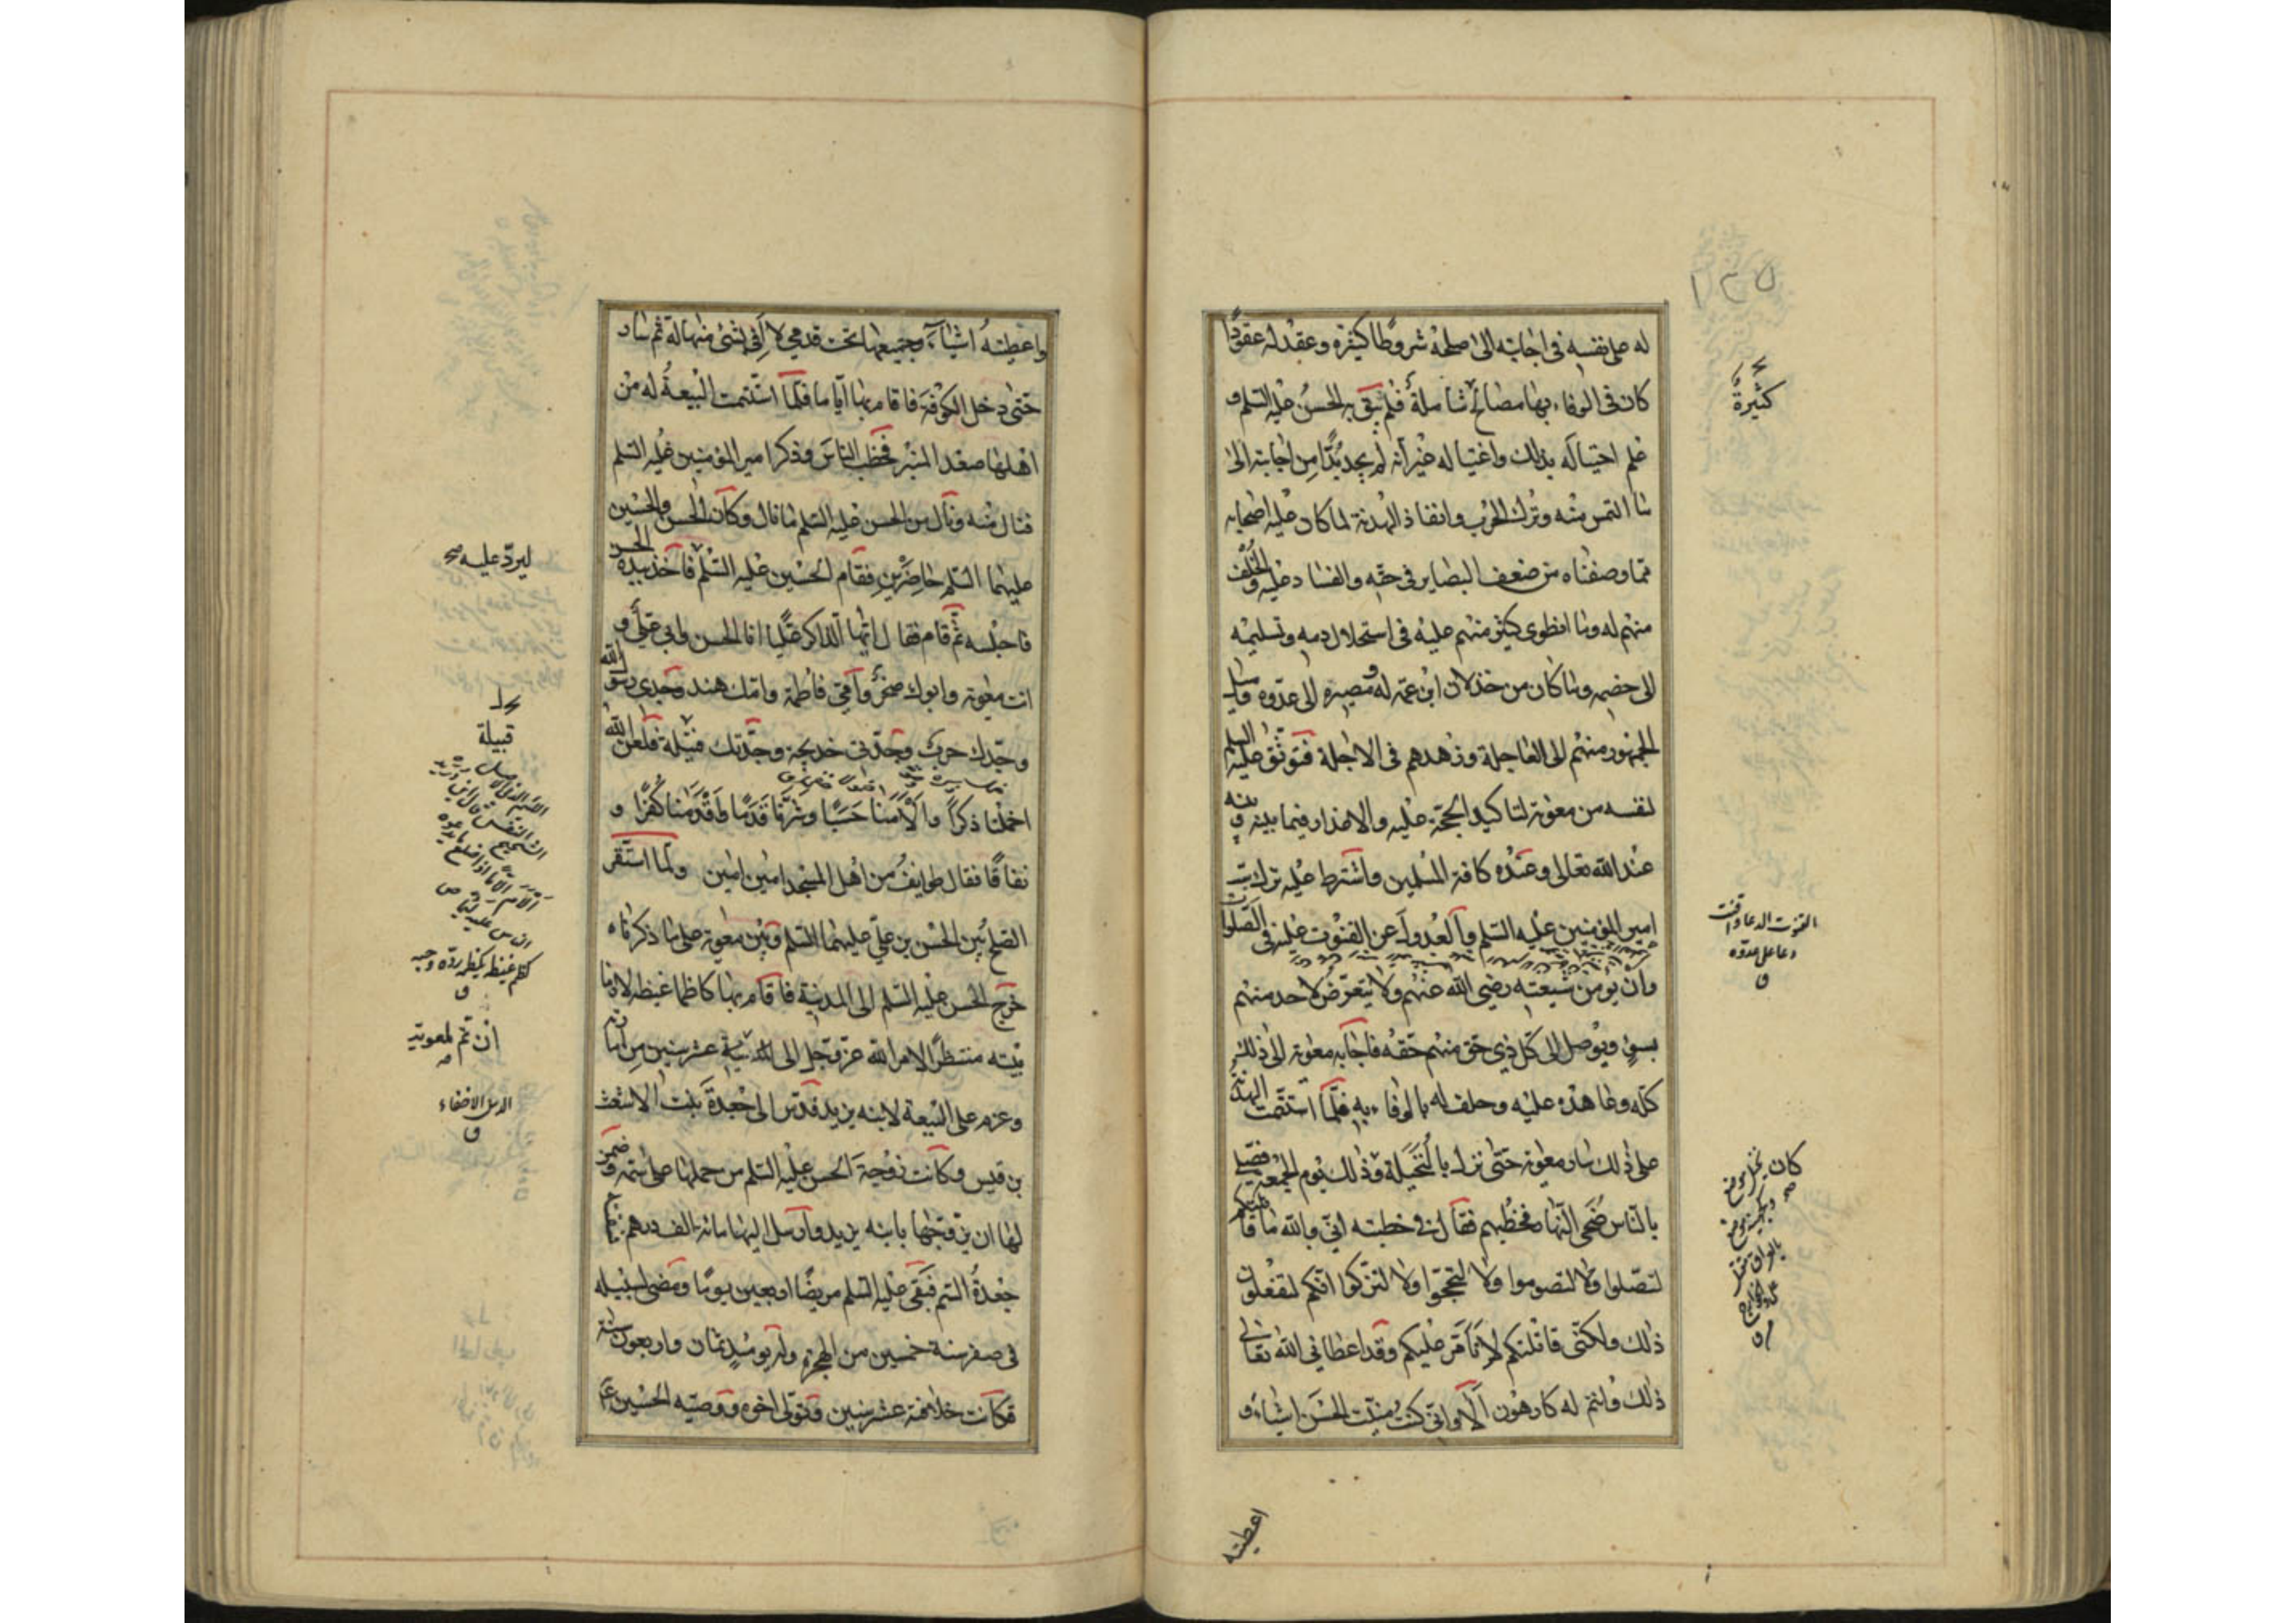 ١٣٥
له على نفسه فى اجابته الى صلحه شروطا كثيرة وعقد له عقودا
كان فى الوفاء بها مصالح شاملة فلم يثق به الحسن عليه السلم و
علم احتياله بذلك واغتياله غير انه لم يجد بدّا من اجابته الى
ما التمس منه وترك الحرب وانفاذ الهدنة لما كان عليه اصحابه
مما وصفناه من ضعف البصاير فى حقه والفساد عليه والخلف
منهم له وما انطوى كثير منهم عليه فى استحلال دمه وتسليمه
الى خصمه وما كان من خذلان ابن عمه له ومصيره الى عدوه وميل
الجمهور منهم الى العاجلة وزهدهم فى الاجلة فتوثق عليه السلم
لنفسه من معوية لتاكيد الحجة عليه والاعذار فيما بينه وبينه
عند الله تعالى وعند كافة المسلمين واشترط عليه ترك سبّ
امير المؤمنين عليه السلم والعدول عن القنوت عليه فى الصلوات
وان يؤمن شيعته رضى الله عنهم ولا يتعرض لاحد منهم
بسوء ويوصل الى كل ذى حق منهم حقه فاجابه معوية الى ذلك
كله وعاهده عليه وحلف له بالوفاء به فلما استتمت الهدنة
على ذلك سار معوية حتى نزل بالنخيلة وذلك يوم الجمعة فصلى
بالناس ضحى النهار فخطبهم فقال فى خطبته انى والله ما قاتلتكم
لتصلوا ولا لتصوموا ولا لتحجوا ولا لتزكوا انكم لتفعلون
ذلك ولكنى قاتلتكم لاتأمّر عليكم وقد اعطانى الله تعالى
ذلك وانتم له كارهون الا وانى كنت منيت الحسن اشياء و
اعطيته
كثيرة
القنوت الدعا
دعا على عدوه
ق
واعطيته اشياء وجميعها تحت قدمى لا افى بشئ منها له ثم سار
حتى دخل الكوفة فاقام بها اياما فلما استتمت البيعة له من
اهلها صعد المنبر فخطب الناس وذكر امير المؤمنين عليه السلم
فنال منه ونال من الحسن عليه السلم ما نال وكان الحسن والحسين
عليهما السلم حاضرين فقام الحسين عليه السلم فاخذ بيده الحسن
فاجلسه ثم قام فقال ايها الذاكر عليا انا الحسن وابى على و
انت معوية وابوك صخر وامى فاطمة وامك هند وجدى رسول الله
وجدك حرب وجدتى خديجة وجدتك فتيلة فلعن الله
اخملنا ذكرا وألأمنا حسبا وشرنا قدما واقدمنا كفرا و
نفاقا فقال طوايف من اهل المسجد امين امين ولما استقر
الصلح بين الحسن بن على عليهما السلم وبين معوية على ما ذكرناه
خرج الحسن عليه السلم الى المدينة فاقام بها كاظما غيظه لازما
بيته منتظرا لامر الله عز وجل الى عشر سنين من امارته
وعزم على البيعة لابنه يزيد فدسّ الى جعدة بنت الاشعث
بن قيس وكانت زوجة الحسن عليه السلم من حملها على سمه وضمن
لها ان يزوجها بابنه يزيد وارسل اليها مائة الف درهم
جعدة السم فبقى عليه السلم مريضا اربعين يوما ومضى لسبيله
فى صفر سنة خمسين من الهجرة وله يومئذ ثمان واربعون سنة
فكانت خلافته عشر سنين وتولى اخوه ووصيه الحسين
ليردّ عليه صح
قبيلة
كظم غيظه يكظمه رده وحبسه
ق
ان تم لمعوية
الدس الاخفاء
ق